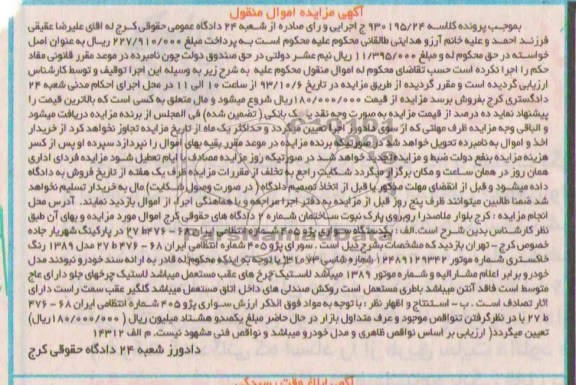 آگهی مزایده اموال منقول
بموجب پرونده کلاسه ۹۳۰۱۹۵/۲۴ ج اجرایی و رای صادره از شعبه ۲۴ دادگاه عمومی حقوقی کرج له آقای علیرضا عقیقی
فرزند احمد و علیه خانم آرزو هدایتی طالقانی محکوم علیه محکوم است به پرداخت مبلغ ۲۲۷/۹۱۰/۰۰۰ ریال به عنوان اصل
خواسته در حق محکوم له و مبلغ ۱۱/۳۹۵/۰۰۰ ریال نیم عشر دولتی در حق صندوق دولت چون نامبرده در موعد مقرر قانونی مفاد
حکم را اجرا نکرده است حسب تقاضای محکوم له اموال منقول محکوم علیه به شرح زیر به وسیله این اجرا توقیف و توسط کارشناس
ارزیابی گردیده است و مقرر گردیده از طریق مزایده در تاریخ ۹۳/۱۰/۶ از ساعت ۱۰ الی ۱۱ در محل اجرای احکام مدنی شعبه ۲۴
دادگستری کرج بفروش برسد مزایده از قیمت ۱۸۰/۰۰۰/۰۰۰ ریال شروع میشود و مال متعلق به کسی است که بالاترین قیمت را
پیشنهاد نماید ده درصد از قیمت مزایده به صورت وجه نقد یا چک بانکی (تضمین شده) فی المجلس از برنده مزایده دریافت میشود
و الباقی وجه مزایده ظرف مهلتی که از سوی دادورز تعیین میگردد و حداکثر یک ماه از تاریخ مزایده تجاوز نخواهد کرد از خریدار
اخذ و اموال به نامبرده تحویل خواهد شد در صورتیکه برنده مزایده در موعد مقرر بقیه بهای اموال را نپردازد سپرده او پس از کسر
هزینه مزایده بنفع دولت ضبط و مزایده تجدید خواهد شد در صورتیکه روز مزایده مصادف با ایام تعطیل شود مزایده فردای اداری
همان روز در همان ساعت و مکان برگزار میگردد شکایت راجع به تخلف از مقررات مزایده ظرف یک هفته از تاریخ فروش به دادگاه
داده میشود و قبل از انقضای مهلت مذکور یا قبل از اتخاذ تصمیم دادگاه (در صورت وصول شکایت) مال به خریدار تسلیم نخواهد
شد ضمنا طالبین میتوانند ظرف پنج روز قبل از مزایده به دفتر اجرا مراجعه و با هماهنگی اجرا از اموال بازدید نمایند. آدرس محل
انجام مزایده: کرج بلوار ملاصدرا روبروی پارک نبوت ساختمان شماره ۲ دادگاه های حقوقی کرج اموال مورد مزایده و بهای آن طبق
نظر کارشناس بدین شرح است. الف: یک دستگاه سواری پژو ۴۰۵ به شماره انتظامی ایران ۶۸ - ۴۷۶ ط ۲۷ در پارکینگ شهریار جاده
خصوص کرج - تهران بازدید که مشخصات بشرح ذیل است. سورای پژو ۴۰۵ شماره انتظامی ایران ۶۸ - ۴۷۶ ط ۲۷ مدل ۱۳۸۹ رنگ
خاکستری شماره موتور ۱۲۴۸۹۱۲۹۳۴۲ شماره شاسی ۳۱۰۷۳ با توجه به اینکه محکوم له قادر به ارائه سند خودرو نبودند مدل
خودرو برابر اعلام مشارالیه و شماره موتور ۱۳۸۹ میباشد لاستیک چرخ های عقب مستعمل میباشد لاستیک چرخهای جلو دارای عاج
متوسط است فاقد آنتن میباشد باطری مستعمل است روکش صندلی های داخل اتاق مستعمل میباشد گلگیر عقب سمت راست دارای
اثار تصادف است. ب - استنتاج و اظهار نظر: با توجه به مواد فوق الذکر ارزش سواری پژو ۴۰۵ شماره انتظامی ایران ۶۸ - ۴۷۶
ط ۲۷ با در نظر گرفتن نواقص موجود و عرف متداول بازار در حال حاضر مبلغ یکصد و هشتاد میلیون ریال (۱۸۰/۰۰۰/۰۰۰ ریال)
تعیین میگردد) ارزیابی بر اساس نواقص ظاهری و مدل خودرو میباشد و نواقص فنی مشهود نیست. م الف ۱۴۳۱۲
دادورز شعبه ۲۴ دادگاه حقوقی کرج
آگهی ابلاغ وقت رسیدگی